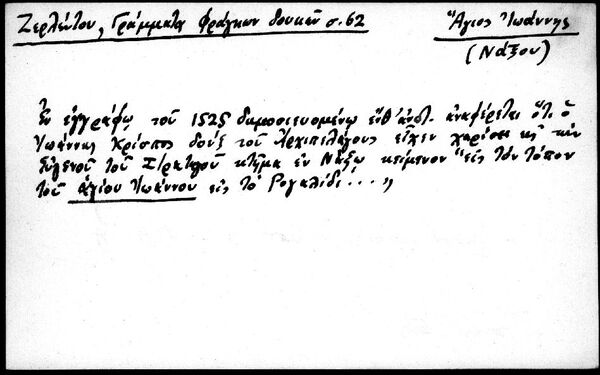 Ζερλέντου, Γράμματα Φράγκων δουκῶν σ.62
Ἅγιος Ἰωάννης
(Νάξου)
Ἐν ἐγγράφῳ τοῦ 1525 δημοσιευομένῳ ἔνθ' ἀνωτ. ἀναφέρεται ὅτι ὁ
Ἰωάννης Κρίσπος δοὺξ τοῦ Ἀρχιπελάγους εἶχεν χαρίσει
τοῦ κτῆμα ἐν Νάξῳ κείμενον "εἰς τὸν τόπον
τοῦ ἁγίου Ἰωάννου εἰς τὸ Ρογαλίδι...,,